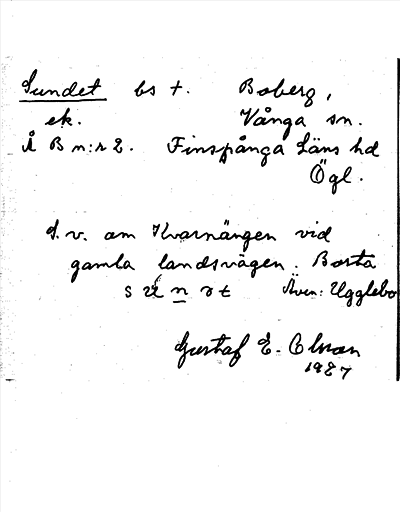 Sundet bs t. Boberg,
ek. Vånga sn.
Å B n:r 2. Finspånga Läns hd
Ögl.
S.v. om Kvarnängen vid
gamla landsvägen. Borta
Även: Ugglebo
Gustaf E. Olsson
1927